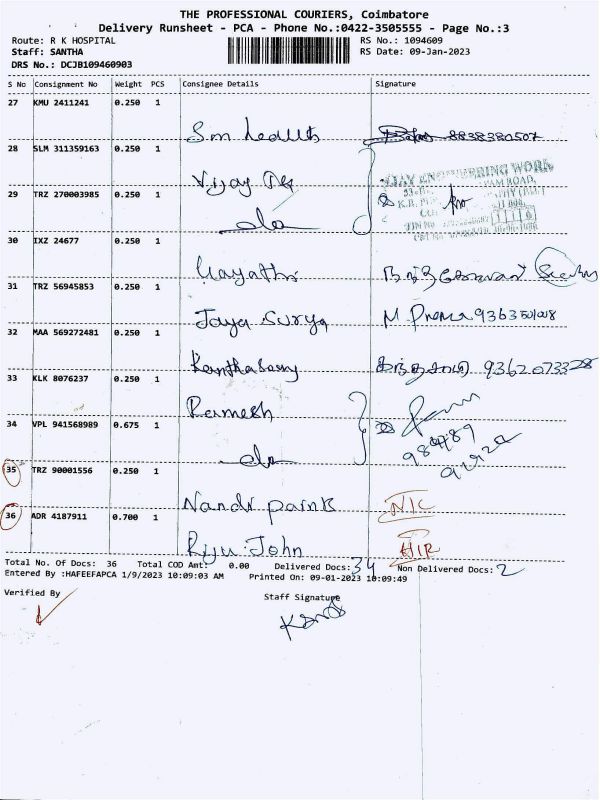 THE PROFESSIONAL COURIERS, Coimbatore
Delivery Runsheet - PCA - Phone No.:0422-3505555 - Page No.:3
Route: R K HOSPITAL RS No.: 1094609
Staff: SANTHA RS Date: 09-Jan-2023
DRS No.: DCJB109460903
S No Consignment No Weight PCS Consignee Details Signature
27 KMU 2411241 0.250 1
Sm health 8838380507
28 SLM 311359163 0.250 1
Vijay
29 TRZ 270003985 0.250 1
30 IXZ 24677 0.250 1
31 TRZ 56945853 0.250 1
Jaya Surya M Prema
32 MAA 569272481 0.250 1
Kanthasamy 9362073328
33 KLK 8076237 0.250 1
Ramesh
34 VPL 941568989 0.675 1
35 TRZ 90001556 0.250 1
Nandi NIC
36 ADR 4187911 0.700 1
Riju John
Total No. Of Docs: 36 Total COD Amt: 0.00 Delivered Docs: 34 Non Delivered Docs: 2
Entered By :HAFEEFAPCA 1/9/2023 10:09:03 AM Printed On: 09-01-2023 10:09:49
Verified By Staff Signature